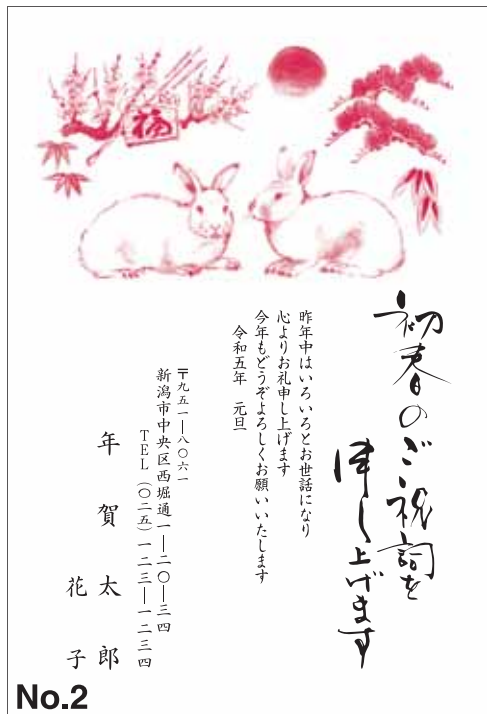 福
初春のご祝詞を
申し上げます
昨年中はいろいろとお世話になり
心よりお礼申し上げます
今年もどうぞよろしくお願いいたします
令和五年 元旦
〒九五一―八〇六一
新潟市中央区西堀通一―二〇―三四
TEL(〇二五)一二三―一二三四
年賀太郎
花子
No.2